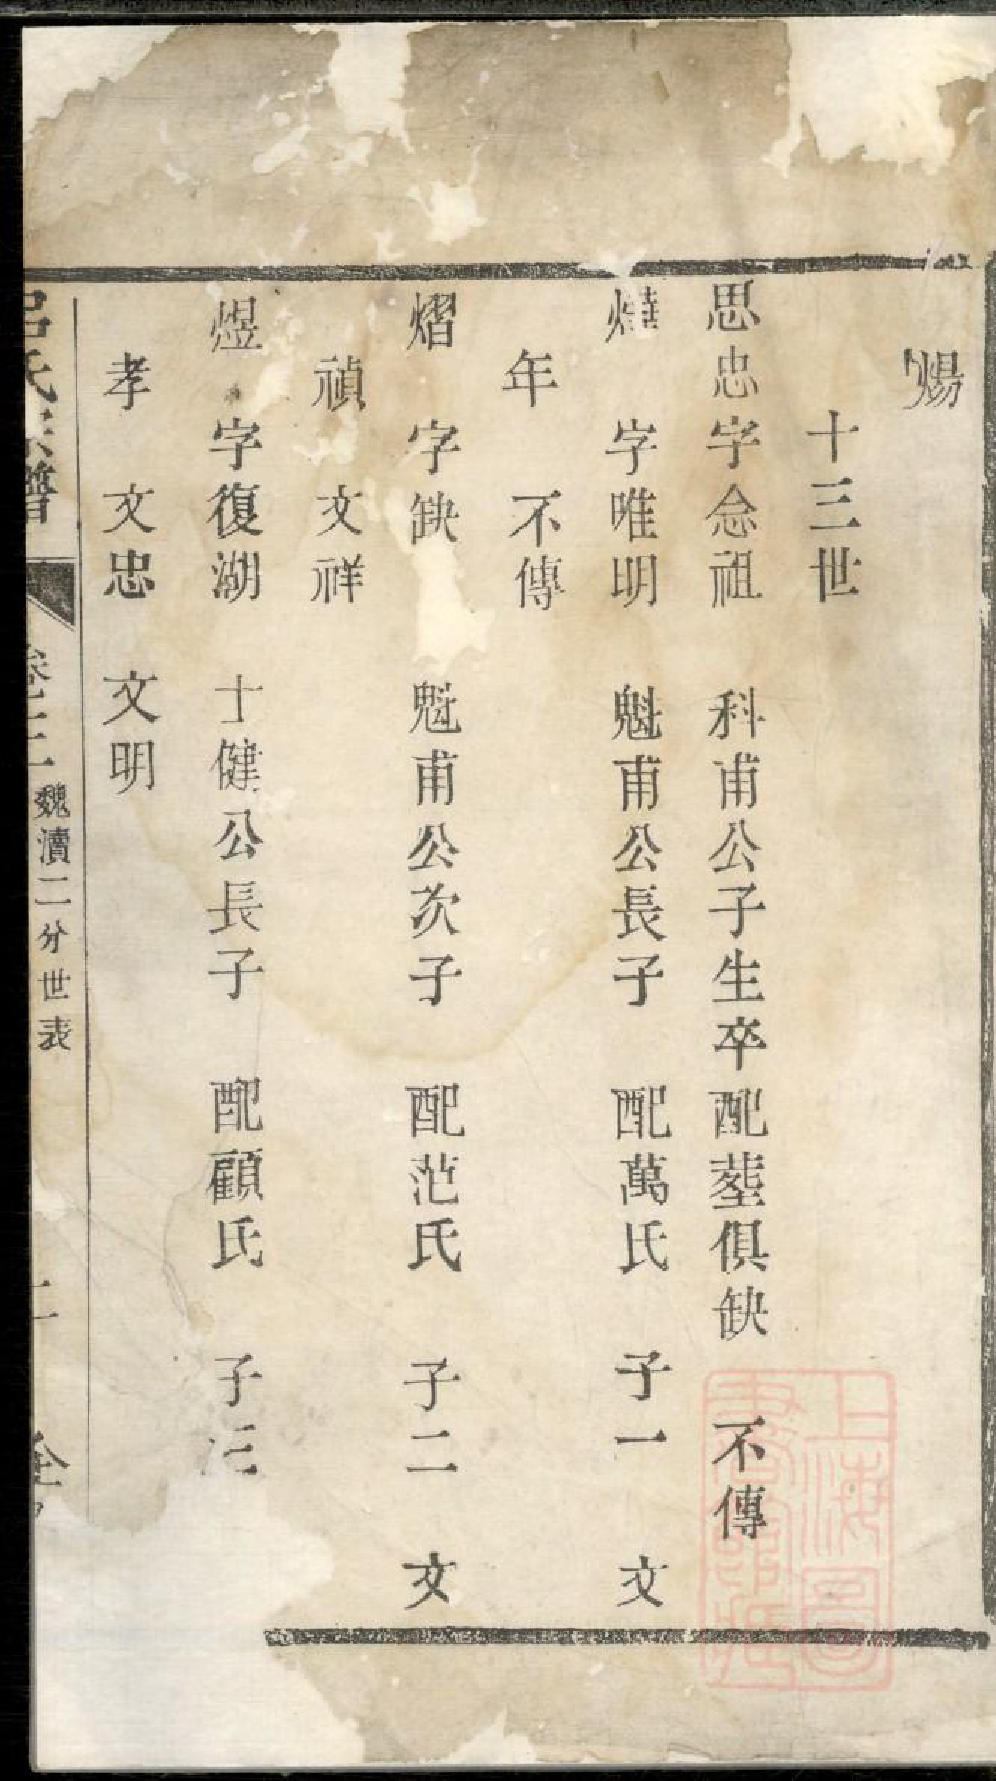 煬
十三世
思忠字念祖 科甫公子生卒配塟俱缺 不傳
燁 字唯明 魁甫公長子 配萬氏 子一 文
年 不傳
熠 字缺 魁甫公次子 配范氏 子二 文
禎 文祥
煜 字復湖 士健公長子 配顧氏 子三
孝 文忠 文明
呂氏宗譜 卷二 魏瀆二分世表 二
上海圖書館藏